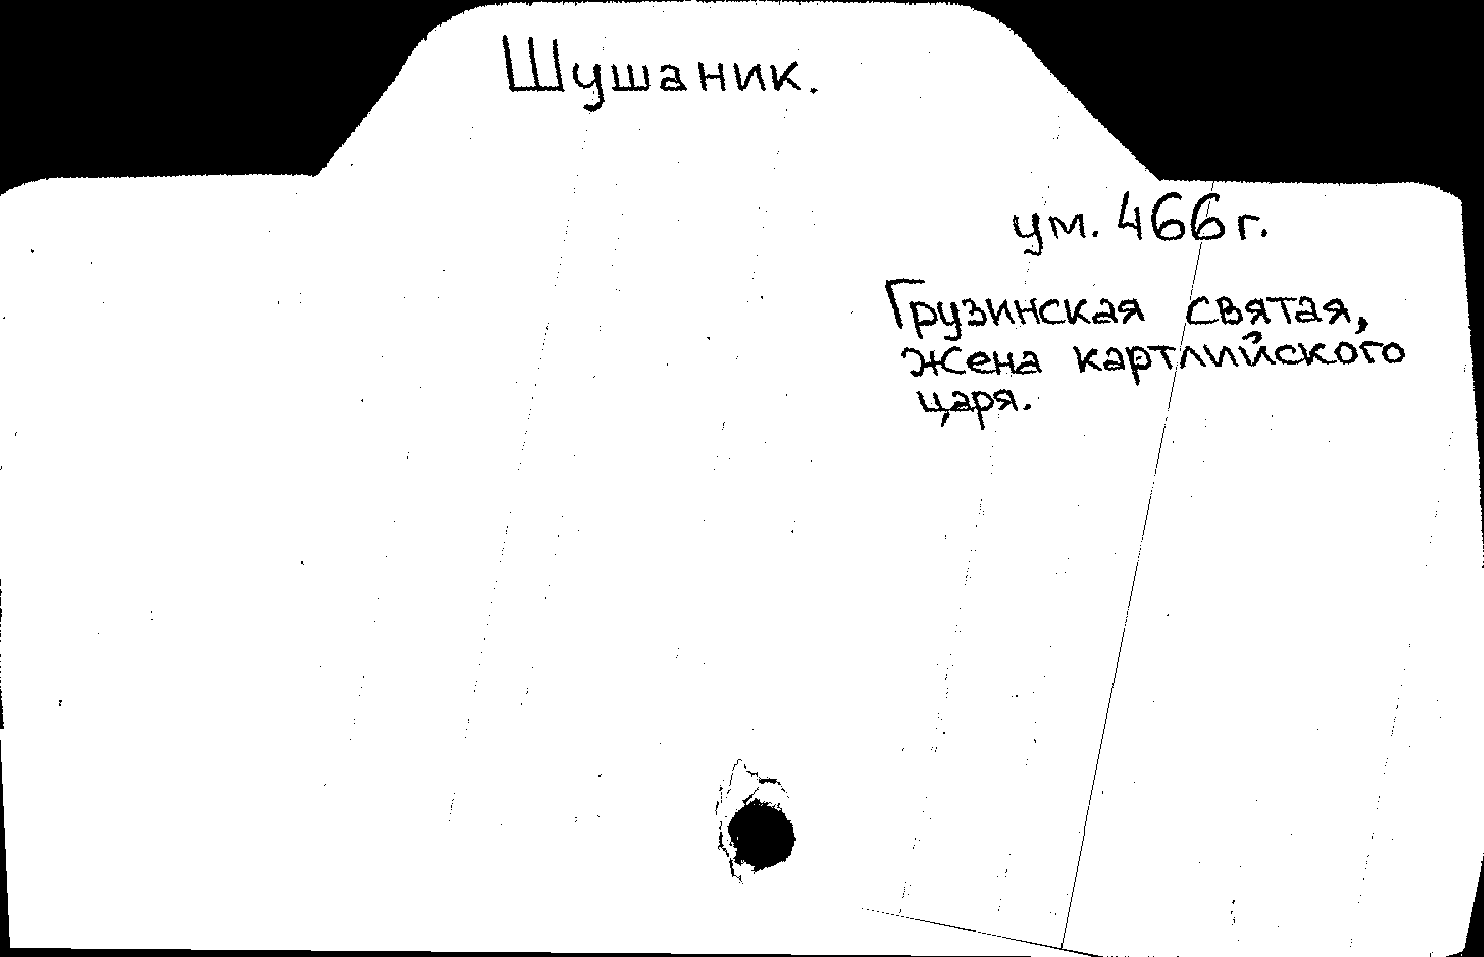 Шушаник.
ум. 466 г.
Грузинская святая,
жена картлийского
царя.